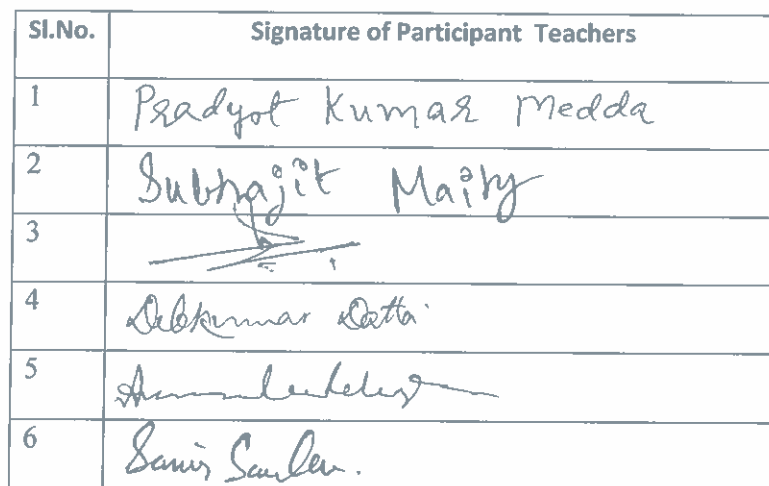 Sl.No. Signature of Participant Teachers
1 Pradyot Kumar Medda
2 Subhajit Maity
3
4 Debkumar Datta
5
6 Samir